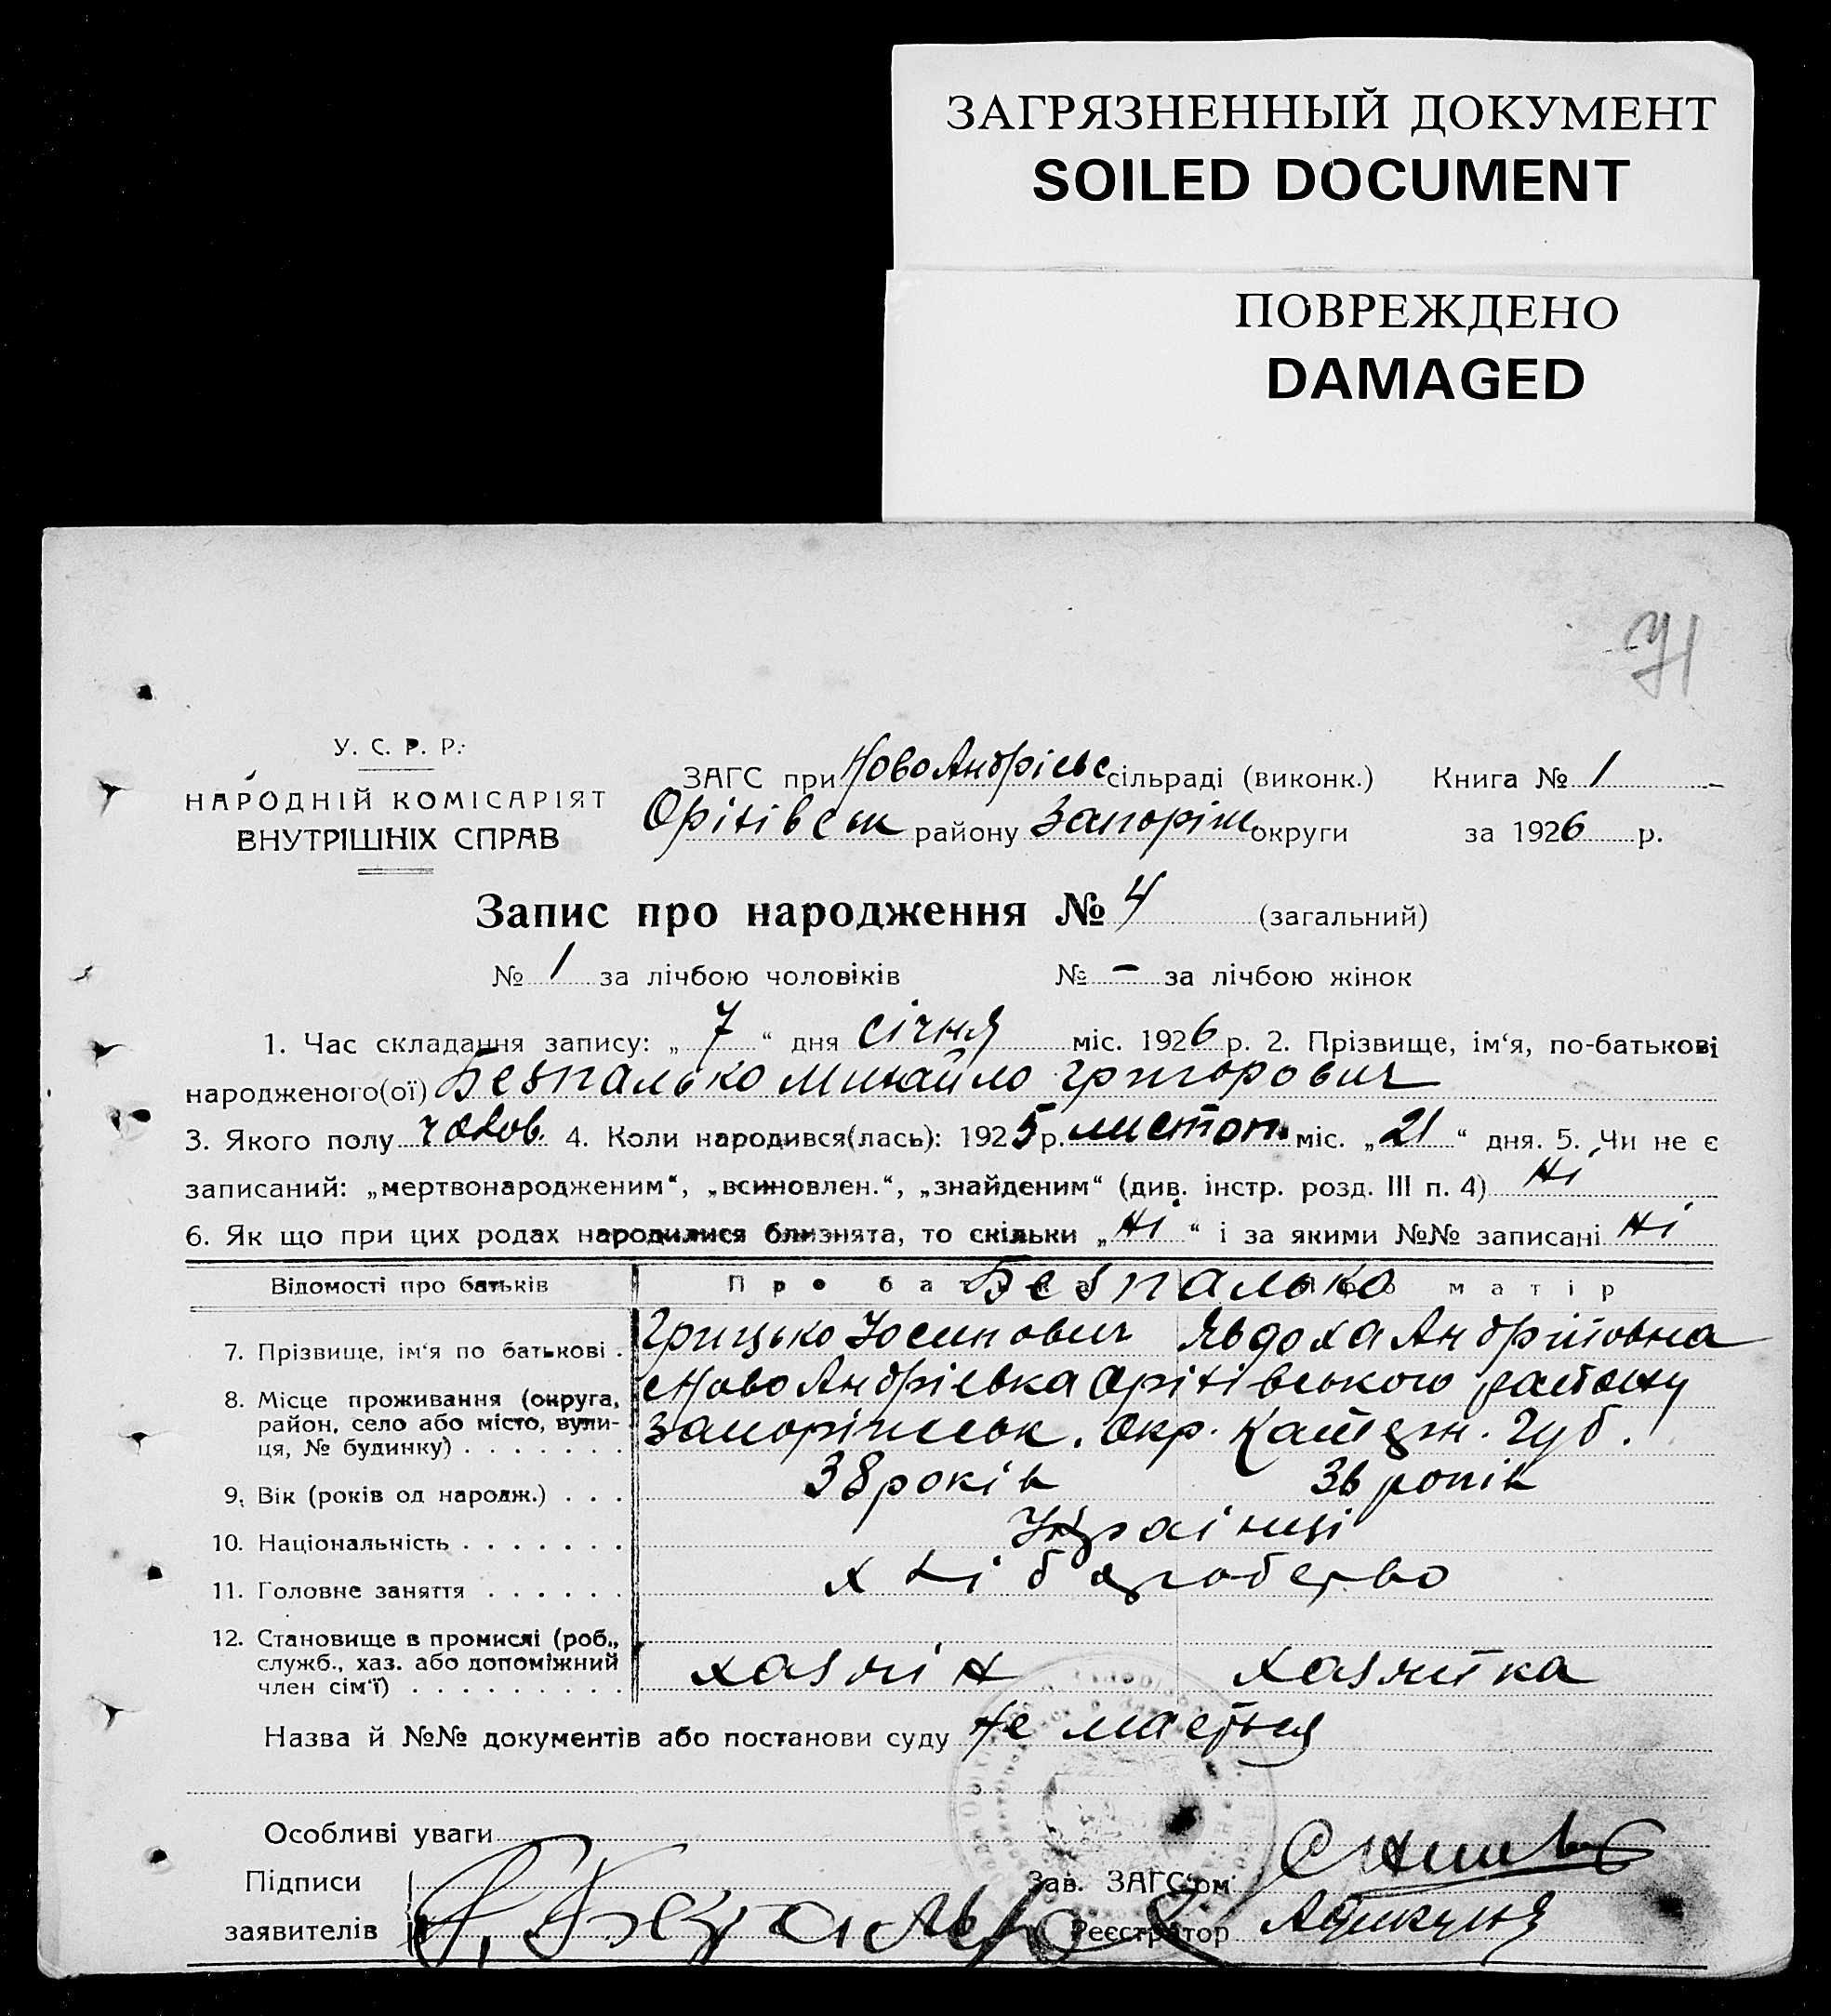 ЗАГРЯЗНЕННЫЙ ДОКУМЕНТ
SOILED DOCUMENT
ПОВРЕЖДЕНО
DAMAGED
71
У. С. Р. Р.
НАРОДНІЙ КОМІСАРІЯТ
ВНУТРІШНІХ СПРАВ
ЗАГС при НовоАндрієвс сільраді (виконк.) Книга № 1
Оріхівськ району Запоріж округи за 1926 р.
Запис про народження № 4 (загальний)
№ 1 за лічбою чоловіків № – за лічбою жінок
1. Час складання запису: „7“ дня січня міс. 1926 р. 2. Прізвище, ім‘я, по-батькові
народженого(ої) Безпалько Михайло Григорович
3. Якого полу чолов. 4. Коли народився(лась): 1925 р. листоп. міс. „21“ дня. 5. Чи не є
записаний: „мертвонародженим“, „всиновлен.“, „знайденим“ (див. інстр. розд. III п. 4) Ні
6. Як що при цих родах народилися близнята, то скільки „Ні“ і за якими №№ записані Ні
Відомості про батьків Про батька Безпалько Про матір
7. Прізвище, ім‘я по батькові . Грицько Юсипович Явдоха Андріївна
8. Місце проживання (округа, НовоАндрієвка Оріхівського району
район, село або місто, вули- Запоріжськ. Окр. Катерин. Губ.
ця, № будинку) . . . . . . .
9. Вік (років од народж.) . . . 38 років 36 років
10. Національність . . . . . . . Українці
11. Головне заняття . . . . . . хліборобство
12. Становище в промислі (роб.,
служб., хаз. або допоміжний хазяїн хазяйка
член сім‘ї) . . . . . . . . .
Назва й №№ документів або постанови суду Не мається
Особливі уваги
Підписи Зав. ЗАГС‘ом
заявителів Г. Безпалько Реєстратор